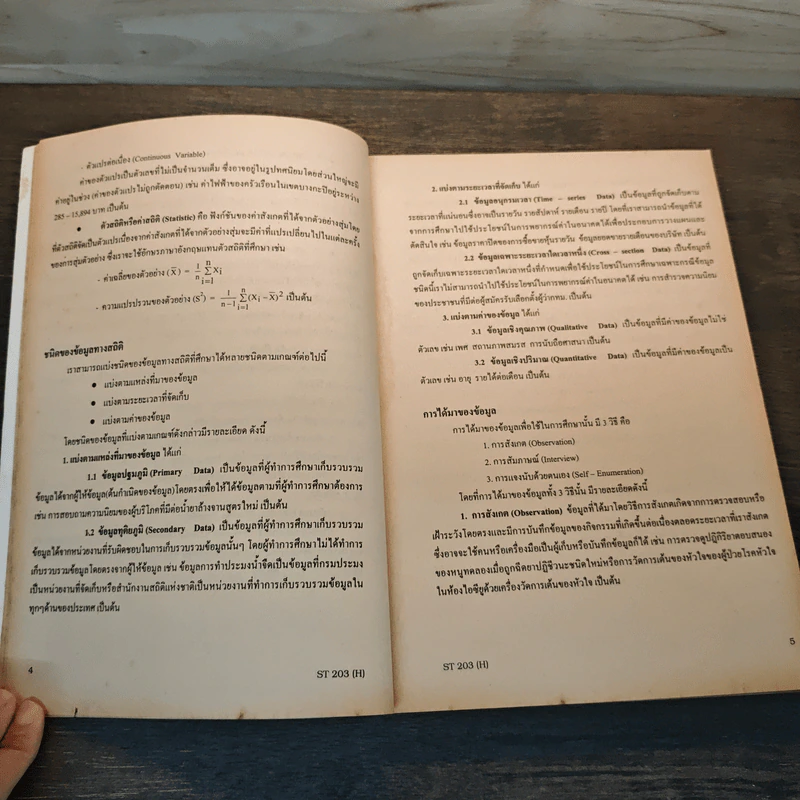 - ตัวแปรต่อเนื่อง (Continuous Variable)
ค่าของตัวแปรเป็นตัวเลขที่ไม่เป็นจำนวนเต็ม ซึ่งอาจอยู่ในรูปทศนิยมโดยส่วนใหญ่จะมี
ค่าอยู่ในช่วง (ค่าของตัวแปรไม่ถูกตัดตอน) เช่น ค่าไฟฟ้าของครัวเรือนในเขตบางกะปิอยู่ระหว่าง
285 – 15,894 บาท เป็นต้น
● ตัวสถิติหรือค่าสถิติ (Statistic) คือ ฟังก์ชันของค่าสังเกตที่ได้จากตัวอย่างสุ่มโดย
ที่ตัวสถิติจัดเป็นตัวแปรเนื่องจากค่าสังเกตที่ได้จากตัวอย่างสุ่มจะมีค่าที่แปรเปลี่ยนไปในแต่ละครั้ง
ของการสุ่มตัวอย่าง ซึ่งเราจะใช้อักษรภาษาอังกฤษแทนตัวสถิติที่ศึกษา เช่น
- ค่าเฉลี่ยของตัวอย่าง (X̄) = 1/n ∑ᵢ₌₁ⁿ Xᵢ
- ความแปรปรวนของตัวอย่าง (S²) = 1/(n−1) ∑ᵢ₌₁ⁿ (Xᵢ − X̄)² เป็นต้น
ชนิดของข้อมูลทางสถิติ
เราสามารถแบ่งชนิดของข้อมูลทางสถิติที่ศึกษาได้หลายชนิดตามเกณฑ์ต่อไปนี้
● แบ่งตามแหล่งที่มาของข้อมูล
● แบ่งตามระยะเวลาที่จัดเก็บ
● แบ่งตามค่าของข้อมูล
โดยชนิดของข้อมูลที่แบ่งตามเกณฑ์ดังกล่าวมีรายละเอียด ดังนี้
1. แบ่งตามแหล่งที่มาของข้อมูล ได้แก่
1.1 ข้อมูลปฐมภูมิ (Primary Data) เป็นข้อมูลที่ผู้ทำการศึกษาเก็บรวบรวม
ข้อมูลได้จากผู้ให้ข้อมูล(ต้นกำเนิดของข้อมูล)โดยตรงเพื่อให้ได้ข้อมูลตามที่ผู้ทำการศึกษาต้องการ
เช่น การสอบถามความนิยมของผู้บริโภคที่มีต่อน้ำยาล้างจานสูตรใหม่ เป็นต้น
1.2 ข้อมูลทุติยภูมิ (Secondary Data) เป็นข้อมูลที่ผู้ทำการศึกษาเก็บรวบรวม
ข้อมูลได้จากหน่วยงานที่รับผิดชอบในการเก็บรวบรวมข้อมูลนั้นๆ โดยผู้ทำการศึกษาไม่ได้ทำการ
เก็บรวบรวมข้อมูลโดยตรงจากผู้ให้ข้อมูล เช่น ข้อมูลการทำประมงน้ำจืดเป็นข้อมูลที่กรมประมง
เป็นหน่วยงานที่จัดเก็บหรือสำนักงานสถิติแห่งชาติเป็นหน่วยงานที่ทำการเก็บรวบรวมข้อมูลใน
ทุกๆด้านของประเทศ เป็นต้น
4
ST 203 (H)
2. แบ่งตามระยะเวลาที่จัดเก็บ ได้แก่
2.1 ข้อมูลอนุกรมเวลา (Time – series Data) เป็นข้อมูลที่ถูกจัดเก็บตาม
ระยะเวลาที่แน่นอนซึ่งอาจเป็นรายวัน รายสัปดาห์ รายเดือน รายปี โดยที่เราสามารถนำข้อมูลที่ได้
จากการศึกษาไปใช้ประโยชน์ในการพยากรณ์ค่าในอนาคตได้เพื่อประกอบการวางแผนและ
ตัดสินใจ เช่น ข้อมูลราคาปิดของการซื้อขายหุ้นรายวัน ข้อมูลยอดขายรายเดือนของบริษัท เป็นต้น
2.2 ข้อมูลเฉพาะระยะเวลาใดเวลาหนึ่ง (Cross – section Data) เป็นข้อมูลที่
ถูกจัดเก็บเฉพาะระยะเวลาใดเวลาหนึ่งที่กำหนดเพื่อใช้ประโยชน์ในการศึกษาเฉพาะกรณีข้อมูล
ชนิดนี้เราไม่สามารถนำไปใช้ประโยชน์ในการพยากรณ์ค่าในอนาคตได้ เช่น การสำรวจความนิยม
ของประชาชนที่มีต่อผู้สมัครรับเลือกตั้งผู้ว่ากทม. เป็นต้น
3. แบ่งตามค่าของข้อมูล ได้แก่
3.1 ข้อมูลเชิงคุณภาพ (Qualitative Data) เป็นข้อมูลที่มีค่าของข้อมูลไม่ใช่
ตัวเลข เช่น เพศ สถานภาพสมรส การนับถือศาสนา เป็นต้น
3.2 ข้อมูลเชิงปริมาณ (Quantitative Data) เป็นข้อมูลที่มีค่าของข้อมูลเป็น
ตัวเลข เช่น อายุ รายได้ต่อเดือน เป็นต้น
การได้มาของข้อมูล
การได้มาของข้อมูลเพื่อใช้ในการศึกษานั้น มี 3 วิธี คือ
1. การสังเกต (Observation)
2. การสัมภาษณ์ (Interview)
3. การแจงนับด้วยตนเอง (Self – Enumeration)
โดยที่การได้มาของข้อมูลทั้ง 3 วิธีนั้น มีรายละเอียดดังนี้
1. การสังเกต (Observation) ข้อมูลที่ได้มาโดยวิธีการสังเกตเกิดจากการตรวจสอบหรือ
เฝ้าระวังโดยตรงและมีการบันทึกข้อมูลของกิจกรรมที่เกิดขึ้นต่อเนื่องตลอดระยะเวลาที่เราสังเกต
ซึ่งอาจจะใช้คนหรือเครื่องมือเป็นผู้เก็บหรือบันทึกข้อมูลก็ได้ เช่น การตรวจดูปฏิกิริยาตอบสนอง
ของหนูทดลองเมื่อถูกฉีดยาปฏิชีวนะชนิดใหม่หรือการวัดการเต้นของหัวใจของผู้ป่วยโรคหัวใจ
ในห้องไอซียูด้วยเครื่องวัดการเต้นของหัวใจ เป็นต้น
ST 203 (H)
5